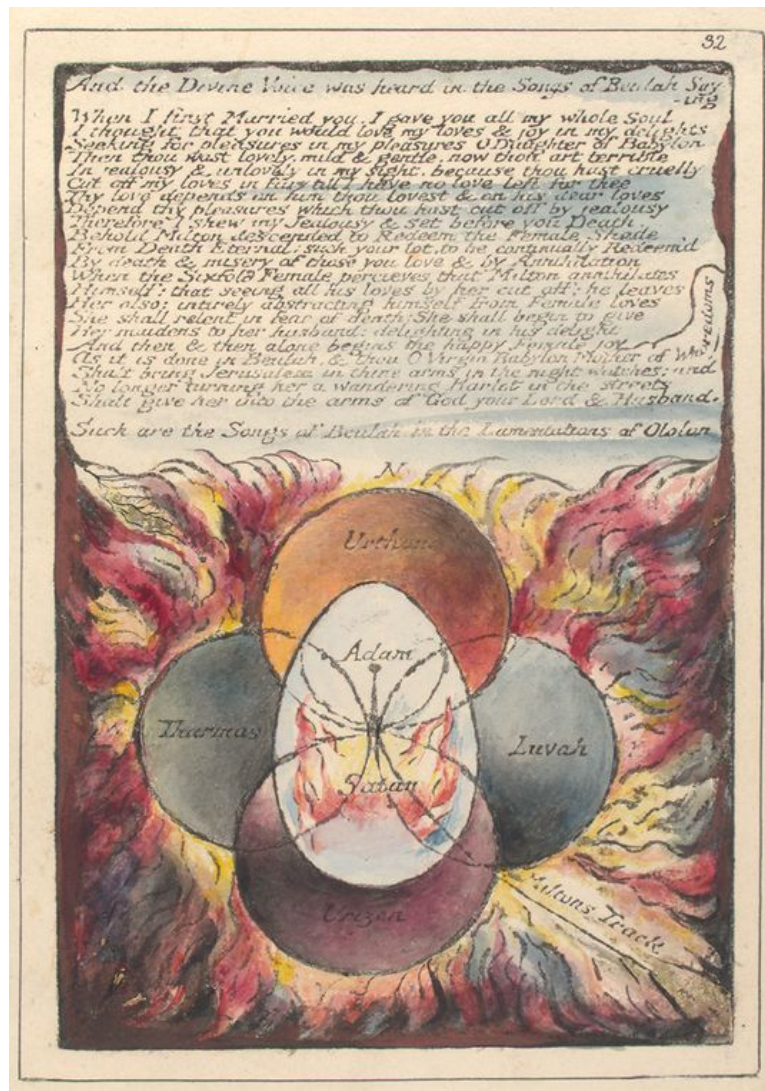 32
And the Divine Voice was heard in the Songs of Beulah Say
-ing
When I first Married you, I gave you all my whole Soul
I thought that you would love my loves & joy in my delights
Seeking for pleasures in my pleasures O Daughter of Babylon
Then thou wast lovely, mild & gentle, now thou art terrible
In jealousy & unlovely in my sight, because thou hast cruelly
Cut off my loves in fury till I have no love left for thee
Thy love depends on him thou lovest & on his dear loves
Depend thy pleasures which thou hast cut off by jealousy
Therefore I shew my Jealousy & set before you Death.
Behold Milton descended to Redeem the Female Shade
From Death Eternal; such your lot, to be continually Redeem'd
By death & misery of those you love & by Annihilation
When the Sixfold Female percieves that Milton annihilates
Himself: that seeing all his loves by her cut off: he leaves
Her also: intirely abstracting himself from Female loves
She shall relent in fear of death: She shall begin to give
Her maidens to her husband: delighting in his delight
And then & then alone begins the happy Female joy
As it is done in Beulah, & thou O Virgin Babylon Mother of Who
redoms
Shalt bring Jerusalem in thine arms in the night watches; and
No longer turning her a wandering Harlot in the streets
Shalt give her into the arms of God your Lord & Husband.
Such are the Songs of Beulah in the Lamentations of Ololon
N
Urthona
Adam
Tharmas
Luvah
Satan
Urizen
Miltons Track